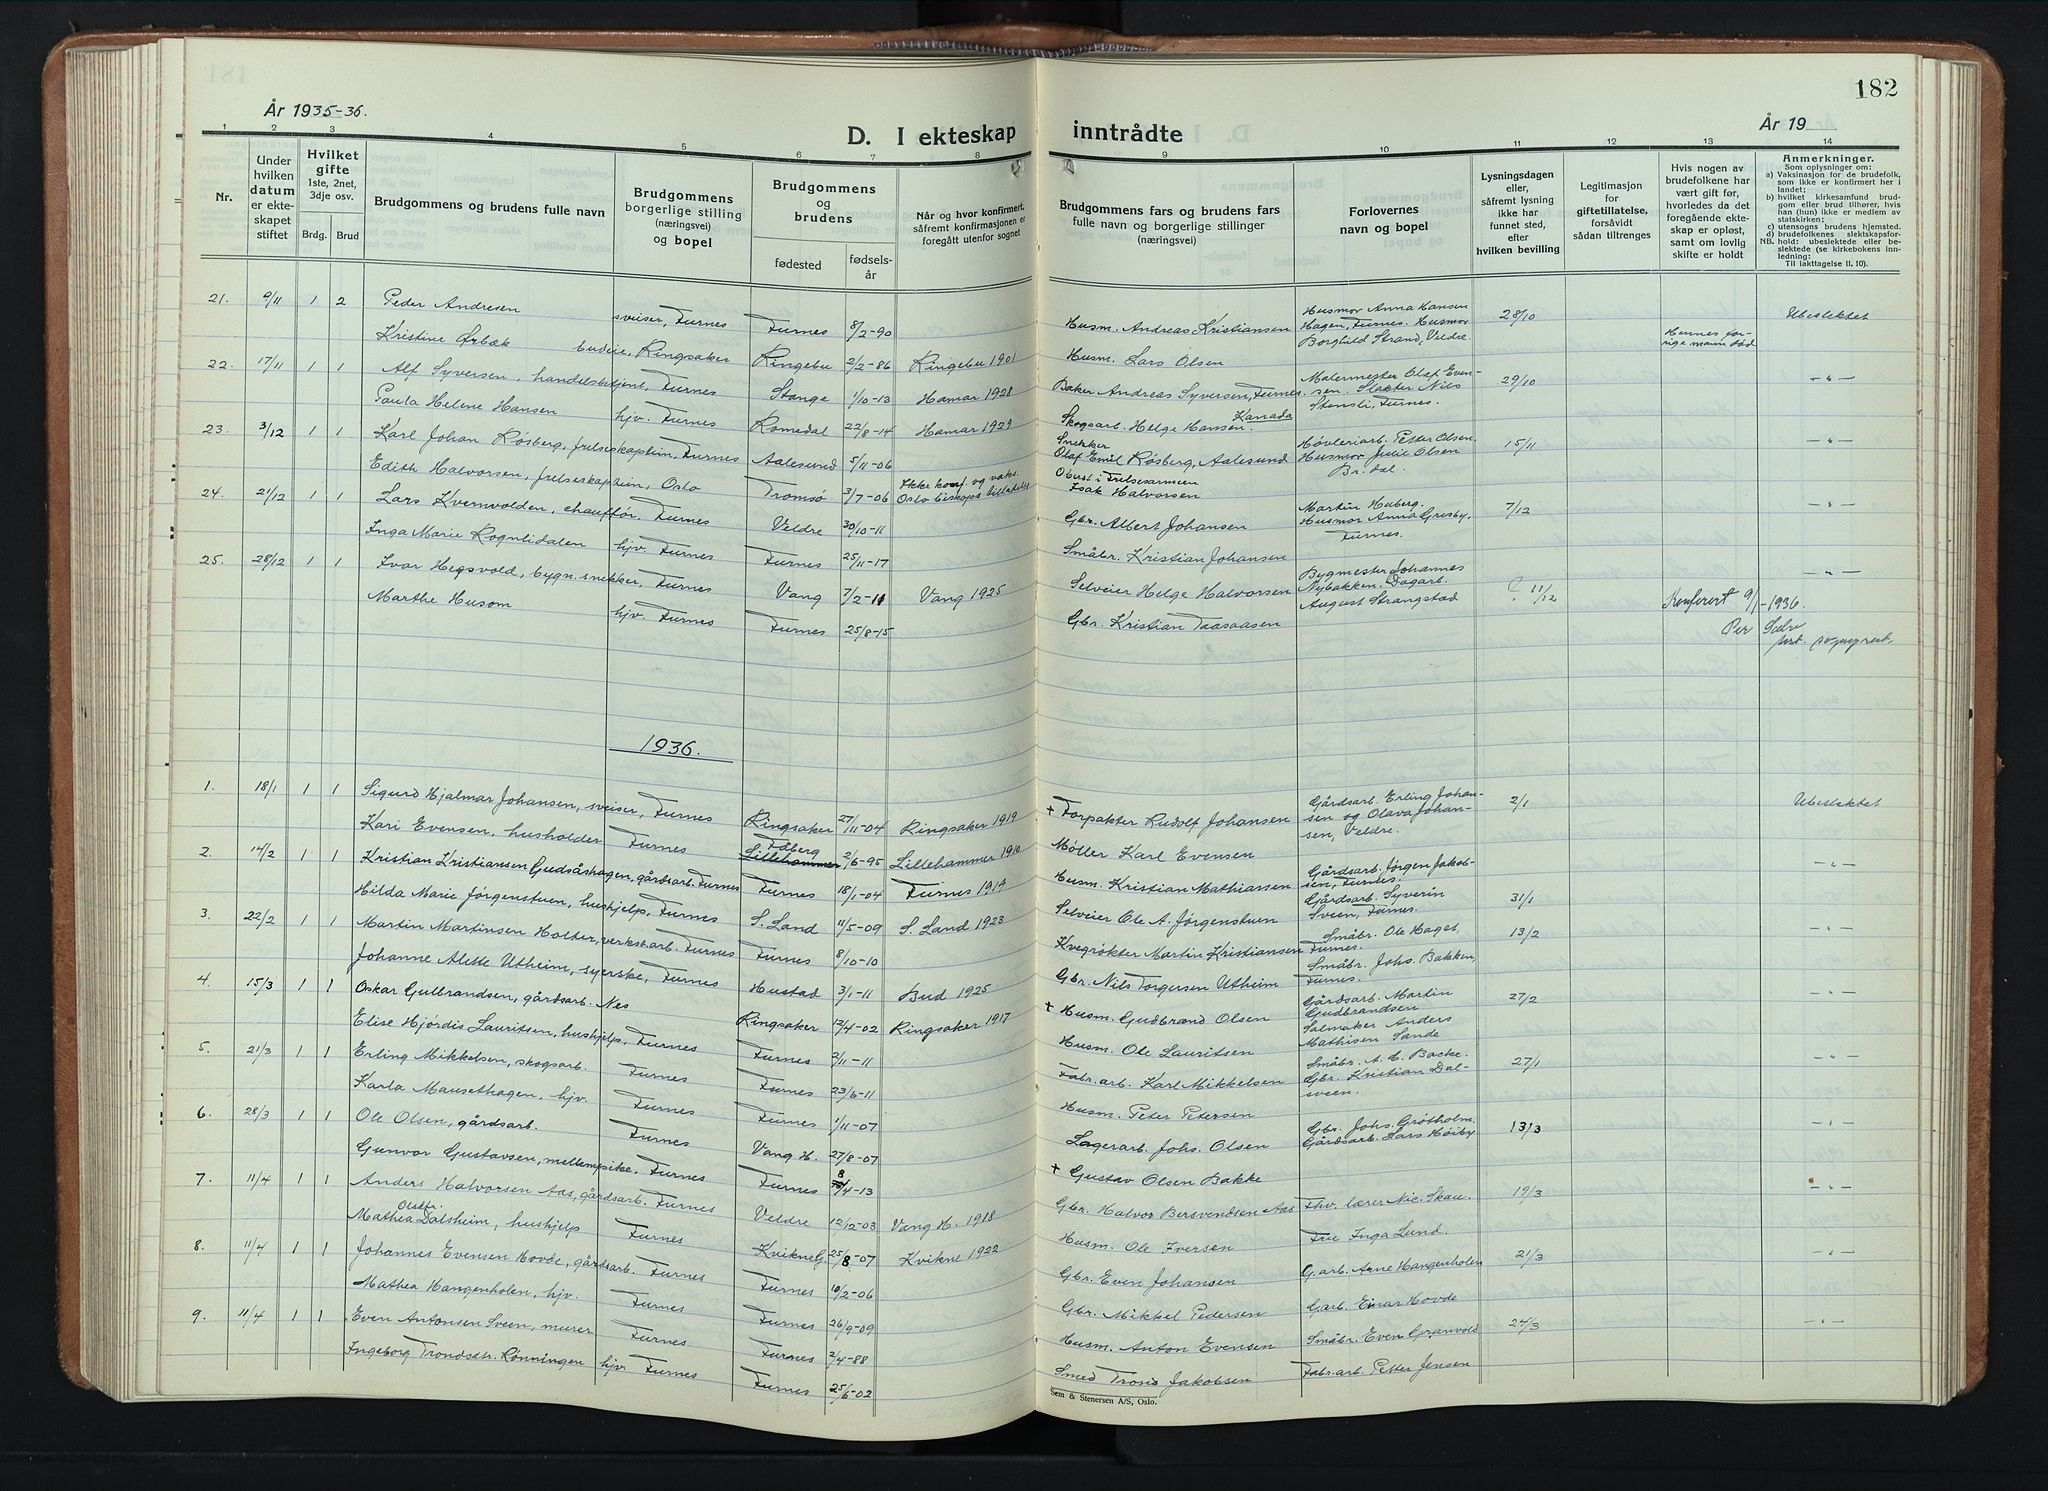 År 1935-36.
182
År 19
D. I ekteskap inntrådte
1 2 3 4 5 6 7 8 9 10 11 12 13 14
Nr.
Under hvilken datum er ekteskapet stiftet
Hvilket gifte 1ste, 2net, 3dje osv.
Brdg. Brud
Brudgommens og brudens fulle navn
Brudgommens borgerlige stilling (næringsvei) og bopel
Brudgommens og brudens
fødested
fødselsår
Når og hvor konfirmert, såfremt konfirmasjonen er foregått utenfor sognet
Brudgommens fars og brudens fars fulle navn og borgerlige stillinger (næringsvei)
Forlovernes navn og bopel
Lysningsdagen eller, såfremt lysning ikke har funnet sted, efter hvilken bevilling
Legitimasjon for giftetillatelse, forsåvidt sådan tiltrenges
Hvis nogen av brudefolkene har vært gift før, hvorledes da det foregående ekteskap er opløst, samt om lovlig skifte er holdt
Anmerkninger.
Som oplysninger om:
a) Vaksinasjon for de brudefolk, som ikke er konfirmert her i landet;
b) hvilket kirkesamfund brudgom eller brud tilhører, hvis han (hun) ikke er medlem av statskirken;
c) utensogns brudens hjemsted.
d) brudefolkenes slektskapsforhold: ubeslektede eller beslektede (se kirkebokens innledning:
NB.
Til iakttagelse II. 10).
21. 9/11 1 2 Peder Andresen sveiser, Furnes Furnes 8/2-90 Husm. Andreas Kristiansen Husmor Anna Hansen Hagen, Furnes. Husmor Borghild Strand, Veldre. 28/10 Ubeslektet
Kristine Ørbæk budeie, Ringsaker Ringebu 2/2-86 Ringebu 1901 Husm. Lars Olsen Hennes forrige mann død
22. 17/11 1 1 Alf Syversen, handelsbetjent, Furnes Stange 1/10-13 Hamar 1928 Baker Andreas Syversen, Furnes. Malermester Olaf Evensen. Slakter Nils Stensli, Furnes. 29/10 -"-
Paula Helene Hansen hjv. Furnes Romedal 22/8-14 Hamar 1929 Skogsarb. Helge Hansen. Kanada
23. 3/12 1 1 Karl Johan Røsberg, frelseskaptein, Furnes Aalesund 5/11-06 Snekker Olaf Emil Røsberg, Aalesund Høvleriarb. Petter Olsen. Husmor Julie Olsen Br.dal. 15/11 -"-
Edith Halvorsen, frelseskaptein, Oslo Tromsø 3/7-06 Ikke konf. og vaks. Oslo biskops tillatelse Oberst i Frelsesarmeen Isak Halvorsen
24. 21/12 1 1 Lars Kvernvolden, chauffør, Furnes Veldre 30/10-11 Gbr. Albert Johansen Martin Huberg. Husmor Anna Gresby, Furnes. 7/12 -"-
Inga Marie Rognlidalen hjv. Furnes Furnes 25/11-17 Småbr. Kristian Johansen
25. 28/12 1 1 Ivar Hegsvold, bygn.snekker, Furnes Vang 7/2-11 Vang 1925 Selveier Helge Halvorsen Bygmester Johannes Nybakken. Dagarb. August Strangstad ? 11/12 -"-
Marthe Husom hjv. Furnes Furnes 25/8-15 Gbr. Kristian Taasaasen
Konferert 9/1-1936.
Per
1936.
1. 18/1 1 1 Sigurd Hjalmar Johansen, sveiser, Furnes Ringsaker 27/11-04 Ringsaker 1919 + Forpakter Rudolf Johansen Gårdsarb. Erling Johansen og Olava Johansen, Veldre. 2/1 Ubeslektet
Kari Evensen, husholder Furnes Fåberg Lillehammer 2/6-95 Lillehammer 1910 Møller Karl Evensen
2. 14/2 1 1 Kristian Kristiansen Gudsåshagen, gårdsarb. Furnes Furnes 18/1-04 Furnes 1919 Husm. Kristian Mathiassen Gårdsarb. Jørgen Jakobsen, Furnes. Gårdsarb. Syverin Sveen, Furnes. 31/1 -"-
Hilda Marie Jørgenstuen, hushjelp, Furnes S. Land 11/5-09 S. Land 1923 Selveier Ole A. Jørgenstuen
3. 22/2 1 1 Martin Martinsen Holter, verkst.arb. Furnes Furnes 8/10-10 Kvegrøkter Martin Kristiansen Småbr. Ole Haget, Furnes. Småbr. Johs. Bakken, Furnes. 13/2 -"-
Johanne Alette Utheim, syerske, Furnes Hustad 3/1-11 Bud 1925 Gbr. Nils Torgersen Utheim
4. 15/3 1 1 Oskar Gulbrandsen, gårdsarb. Nes Ringsaker 12/4-02 Ringsaker 1917 + Husm. Gudbrand Olsen Gårdsarb. Martin Gudbrandsen Salmaker Anders Mathisen Sande 27/2 -"-
Elise Hjørdis Lauritsen, hushjelp, Furnes Furnes 2/11-11 Husm. Ole Lauritsen
5. 21/3 1 1 Erling Mikkelsen, skogsarb. Furnes Furnes 23/6-11 Fabr.arb. Karl Mikkelsen Småbr. A. M. Backe. Gbr. Kristian Dalsveen. 27/1 -"-
Karla Mausethagen, hjv. Furnes Furnes 1/11-07 Husm. Peter Petersen
6. 28/3 1 1 Ole Olsen, gårdsarb. Furnes Vang H. 27/8-07 Lagerarb. Johs. Olsen Gbr. Johs. Grøtholm. Gårdsarb. Lars Høiby 13/3 -"-
Gunvor Gustavsen, mellempike, Furnes Furnes 8/4-13 + Gustav Olsen Bakke
7. 11/4 1 1 Anders Halvorsen Aas, gårdsarb. Furnes Veldre 12/2-03 Vang H. 1918 Gbr. Halvor Bersvendsen Aas Fhv. lærer Nic. Skau. 19/3 -"-
Mathea Olsdtr. Dalsheim, hushjelp Furnes Kvikne G. 25/8-07 Kvikne 1922 Husm. Ole Iversen Fru Inga Lund.
8. 11/4 1 1 Johannes Evensen Hovde, gårdsarb. Furnes Furnes 10/2-06 Gbr. Even Johansen G.arb. Arne Hangenholen 21/3 -"-
Mathea Hangenholen, hjv. Furnes Furnes 26/9-09 Gbr. Mikkel Pedersen G.arb. Einar Hovde
9. 11/4 1 1 Even Antonsen Sveen, murer Furnes Furnes 2/4-88 Husm. Anton Evensen Småbr. Even Granvold 24/3 -"-
Ingeborg Trondsdtr. Rønningen hjv. Furnes Furnes 25/6-02 Smed Trond Jakobsen Fabr.arb. Petter Jensen
Sem & Stenersen A/S, Oslo.